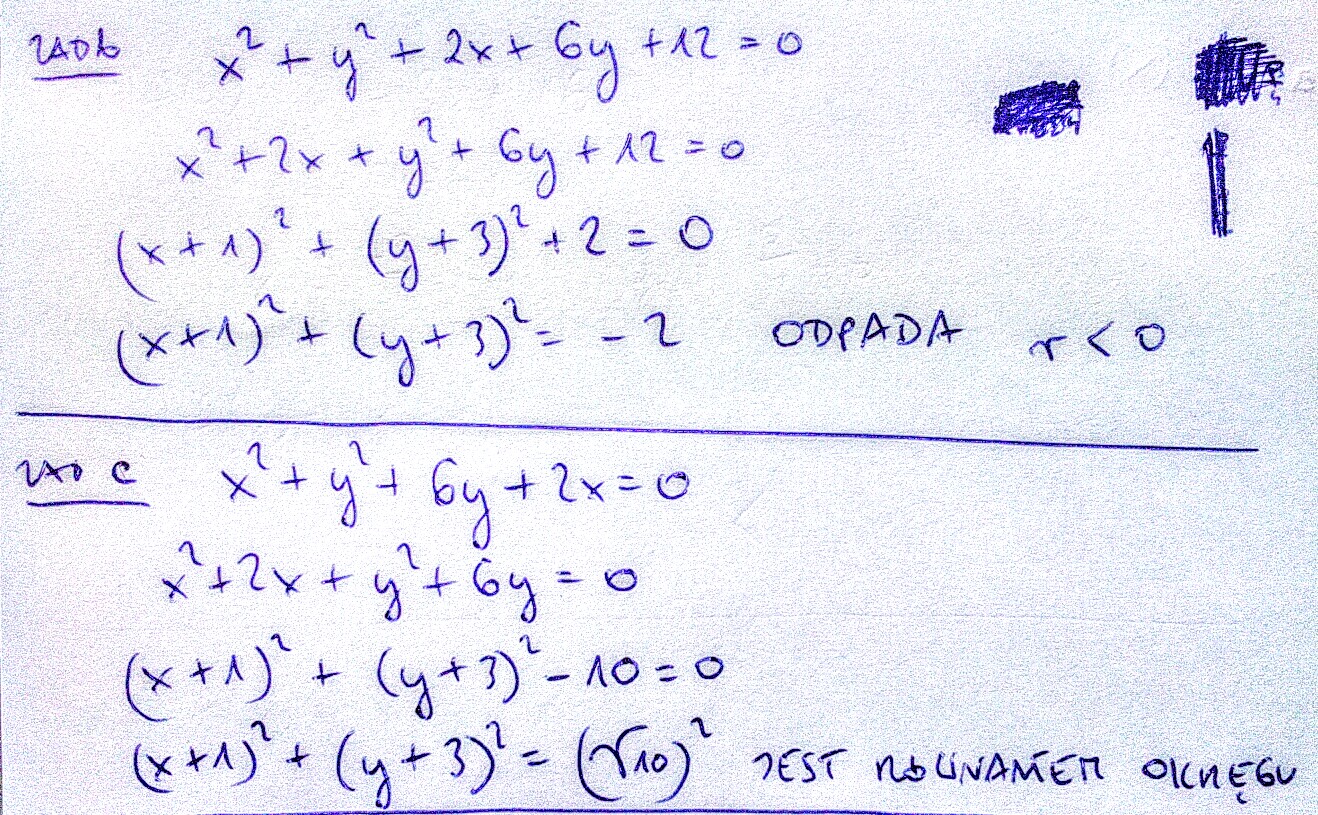 ZAD b x² + y² + 2x + 6y + 12 = 0
x² + 2x + y² + 6y + 12 = 0
(x + 1)² + (y + 3)² + 2 = 0
(x + 1)² + (y + 3)² = - 2 ODPADA r < 0
ZAD C x² + y² + 6y + 2x = 0
x² + 2x + y² + 6y = 0
(x + 1)² + (y + 3)² - 10 = 0
(x + 1)² + (y + 3)² = (√10)² JEST OKRĘGU